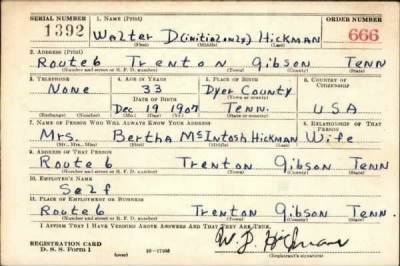 SERIAL NUMBER 1. NAME (Print) ORDER NUMBER
1392 Walter D (initial only) Hickman 666
(First) (Middle) (Last)
2. ADDRESS (Print)
Route 6 Trenton Gibson Tenn
(Number and street or R. F. D. number) (Town) (County) (State)
3. TELEPHONE 4. AGE IN YEARS 5. PLACE OF BIRTH 6. COUNTRY OF CITIZENSHIP
None 33 Dyer County
DATE OF BIRTH (Town or county)
Dec 19 1907 Tenn. USA
(Exchange) (Number) (Mo.) (Day) (Yr.) (State or country)
7. NAME OF PERSON WHO WILL ALWAYS KNOW YOUR ADDRESS 8. RELATIONSHIP OF THAT PERSON
Mrs. Bertha McIntosh Hickman Wife
(Mr., Mrs., Miss) (First) (Middle) (Last)
9. ADDRESS OF THAT PERSON
Route 6 Trenton Gibson Tenn
(Number and street or R. F. D. number) (Town) (County) (State)
10. EMPLOYER'S NAME
Self
11. PLACE OF EMPLOYMENT OR BUSINESS
Route 6 Trenton Gibson Tenn
(Number and street or R. F. D. number) (Town) (County) (State)
I AFFIRM THAT I HAVE VERIFIED ABOVE ANSWERS AND THAT THEY ARE TRUE.
REGISTRATION CARD
D. S. S. Form 1 (over) W. D. Hickman
(Registrant's signature)